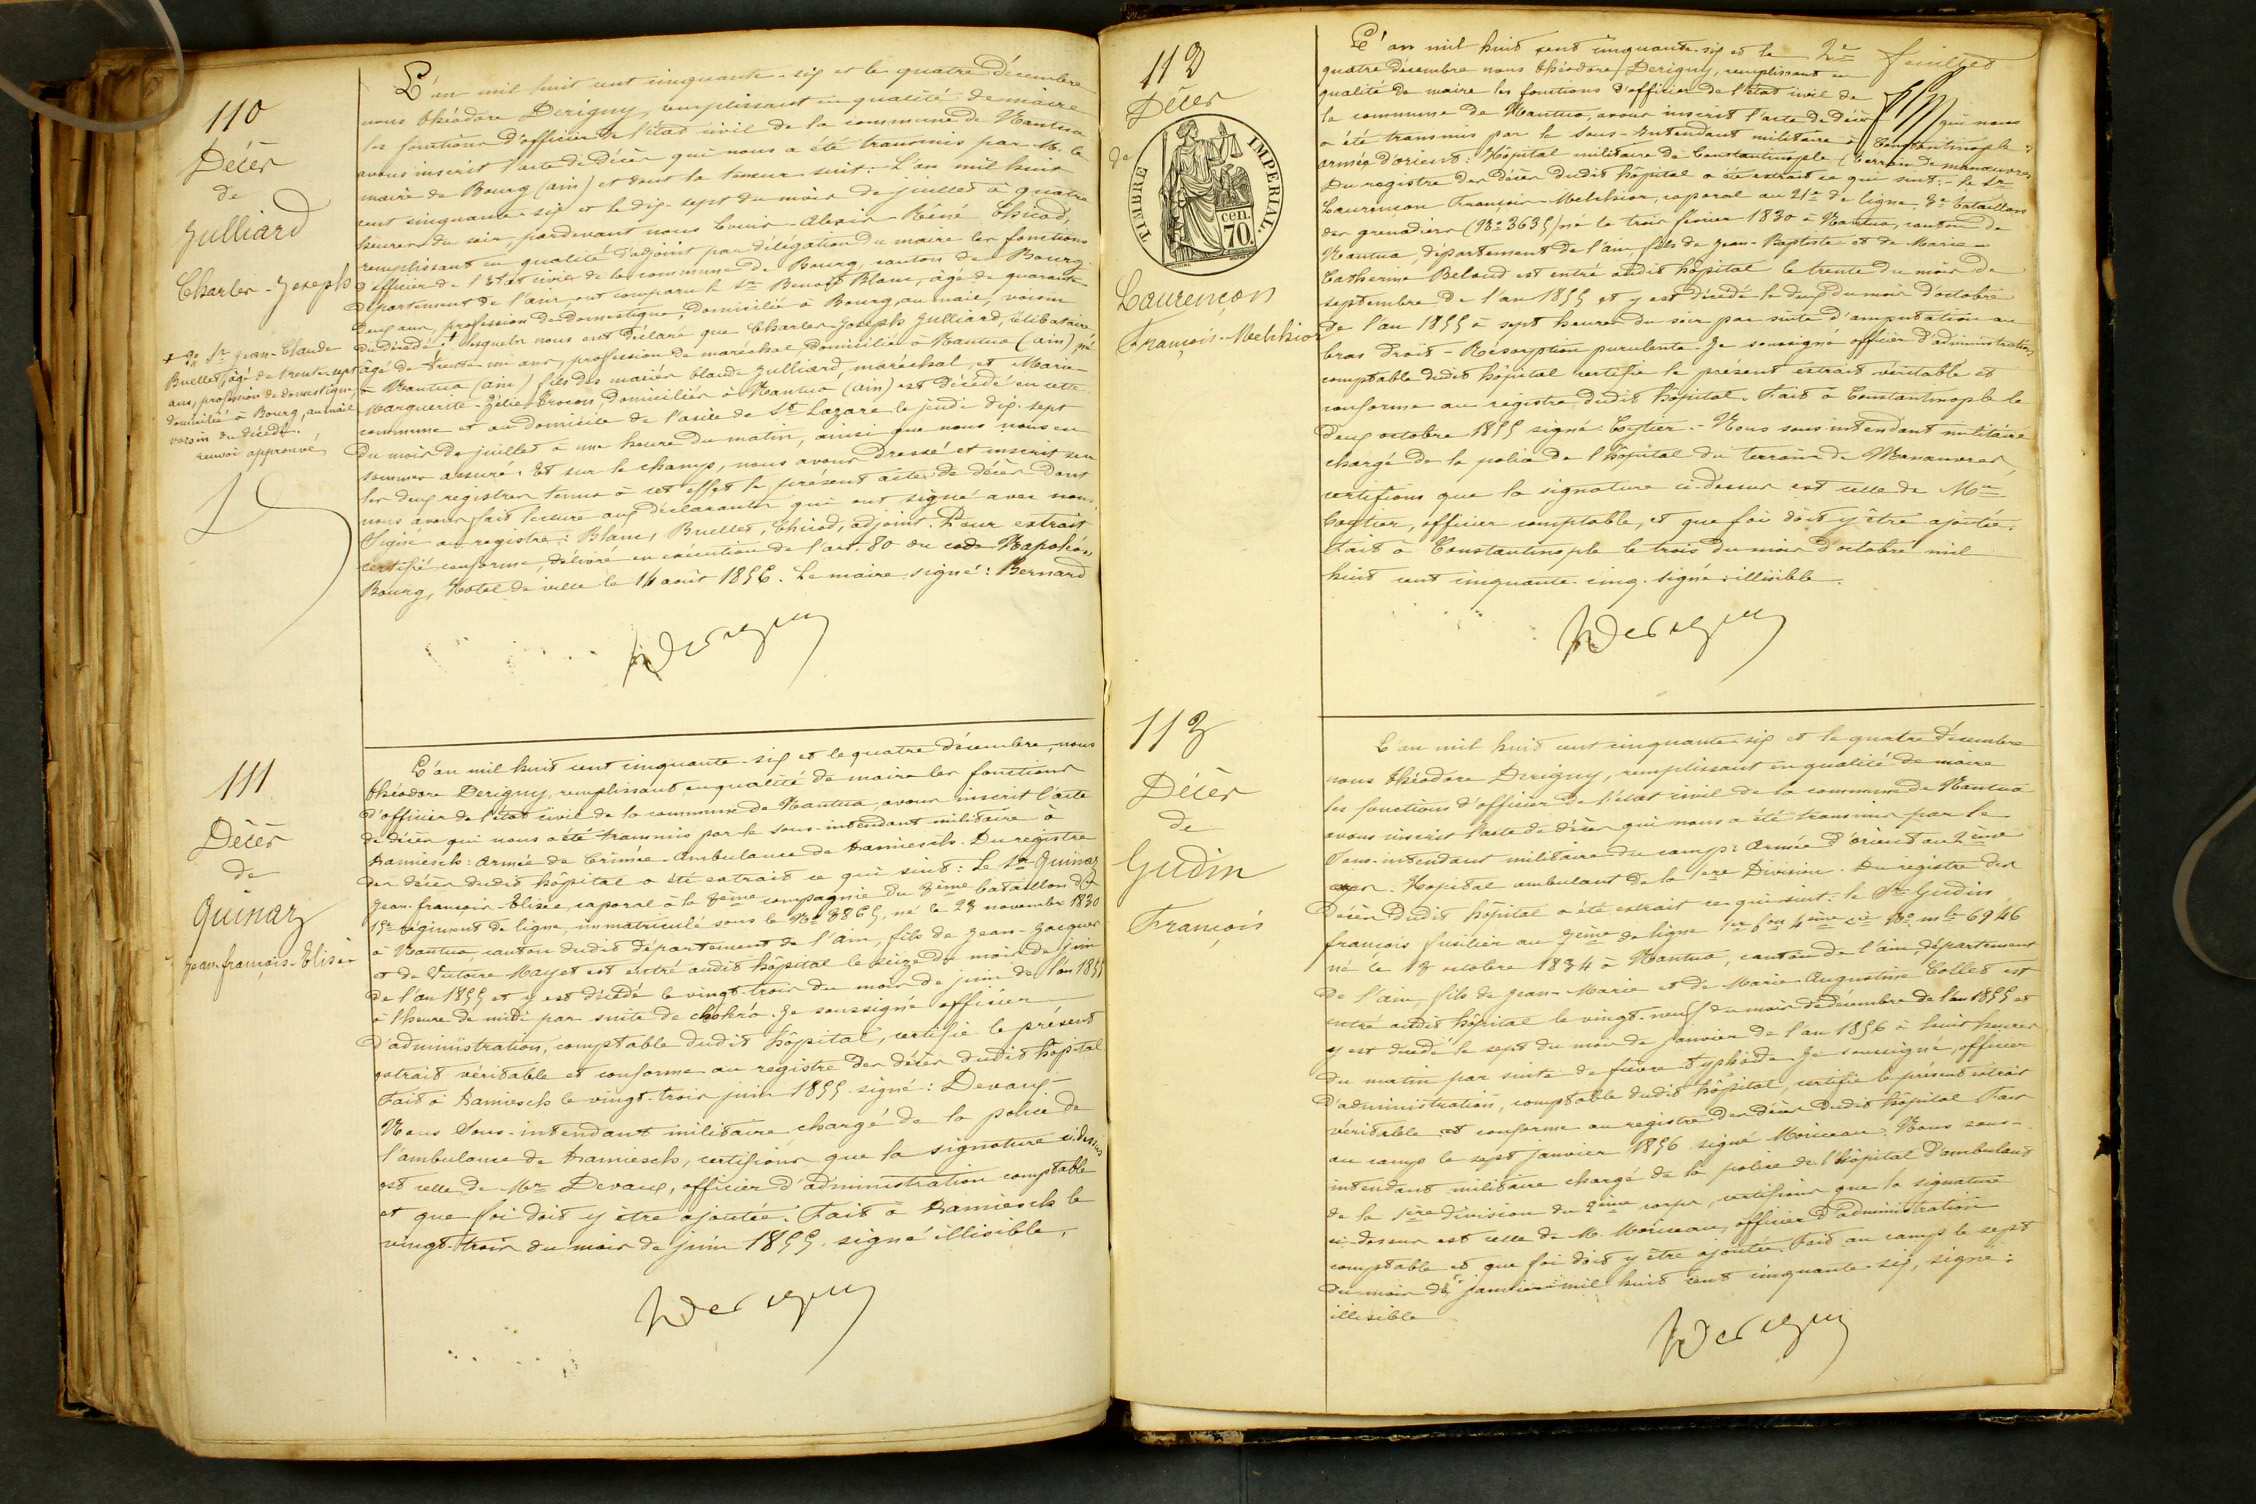 110
Décès
de
Julliard
Charles-Joseph
+ & Sr Jean-Claude
Buellet, âgé de trente-sept
ans, profession de domestique,
domicilié à Bourg, au mail
voisin du décédé.
renvoi approuvé
L'an mil huit cent cinquante-six et le quatre décembre
nous théodore Derigny, remplissant en qualité de maire
les fonctions d'officier de l'état civil de la commune de Nantua
avons inscrit l'acte de décès qui nous a été transmis par Mr le
maire de Bourg (ain) et dont la teneur suit: L'an mil huit
cent cinquante-six et le dix-sept du mois de juillet à quatre
heures du soir, pardevant nous Louis-Alexis-Réné Chicod,
remplissant en qualité d'adjoint par délégation du maire les fonctions
d'officier de l'état civil de la commune de Bourg, canton de Bourg,
département de l'ain, ont comparu le Sr Benoît Blanc, âgé de quarante-
deux ans, profession de domestique, domicilié à Bourg, au mail, voisin
du décédé +, lesquels nous ont déclaré que Charles-Joseph Julliard, célibataire,
âgé de trente un ans, profession de maréchal, domicilié à Nantua (ain) né
à Nantua (ain) fils des mariés Claude Julliard, maréchal, et Marie-
Marguerite-Zélie domiciliés à Nantua (ain) est décédé en cette
commune et au domicile de l'asile de St Lazare le jeudi dix-sept
du mois de juillet à une heure du matin, ainsi que nous nous en
sommes assuré. Et sur le champ, nous avons dressé et inscrit sur
les deux registres tenus à cet effet le présent acte de décès dont
nous avons fait lecture aux déclarants qui ont signé avec nous.
Signé au registre: Blanc, Buellet, Chicod, adjoint. Pour extrait
certifié conforme, délivré en exécution de l'art. 80 du code Napoléon
Bourg, Hotel de ville le 14 août 1856. Le maire signé: Bernard
Derigny
111
Décès
de
Quinaz
Jean-françois-Elisée
L'an mil huit cent cinquante-six et le quatre décembre, nous
théodore Derigny, remplissant en qualité de maire les fonctions
d'officier de l'état civil de la commune de Nantua, avons inscrit l'acte
de décès qui nous a été transmis par le sous-intendant militaire à
Kamiesch: Armée de Crimée - ambulance de Kamiesch. Du registre
des décès dudit hôpital a été extrait ce qui suit: Le Sr Quinaz
Jean-françois-Elisée, caporal à la 3ème compagnie du 3ème bataillon du
15e régiment de ligne, immatriculé sous le No 3865, né le 23 novembre 1830
à Nantua canton dudit département de l'ain, fils de Jean-Jacques
et de Victoire Mayet est entré audit hôpital le seize du mois de juin
de l'an 1855 et y est décédé le vingt-trois du mois de juin de l'an 1855
à l'heure de midi par suite de choléra. Je soussigné officier
d'administration, comptable dudit hôpital, certifie le présent
extrait véritable et conforme au registre des décès dudit hôpital
Fait à Kamiesch le vingt-trois juin 1855 signé: Devaux-
Nous Sous-intendant militaire chargé de la police de
l'ambulance de Kamiesch, certifions que la signature ci-dessus
est celle de Mr Devaux, officier d'administration comptable
et que foi doit y être ajoutée. Fait à Kamiesch le
vingt-trois du mois de juin 1855 signé illisible.
Derigny
112
Décès
de
TIMBRE IMPERIAL.
70. cen.
Laurençon
François-Melchior
2e feuillet
L'an mil huit cent cinquante-six et le
quatre décembre nous théodore Derigny, remplissant en
qualité de maire les fonctions d'officier de l'état civil de
la commune de Nantua, avons inscrit l'acte de décès qui nous
a été transmis par le Sous-Intendant militaire à Constantinople:
armée d'orient: Hôpital militaire de Constantinople (terrain de manoeuvres)
Du registre des décès dudit hôpital a été extrait ce qui suit: le Sr
Laurençon François-Melchior, caporal au 21e de ligne, 3e bataillon
des grenadiers (No 3635) né le trois février 1830 à Nantua, canton de
Nantua, département de l'ain, fils de Jean-Baptiste et de Marie-
Catherine Beloud est entré audit hôpital le trente du mois de
septembre de l'an 1855 et y est décédé le deux du mois d'octobre
de l'an 1855 à sept heures du soir par suite d'amputation au
bras droit - Résorption purulente. Je soussigné officier d'administration
comptable dudit hôpital certifie le présent extrait véritable et
conforme au registre dudit hôpital. Fait à Constantinople le
deux octobre 1855 signé - Nous sous-intendant militaire
chargé de la police de l'hôpital du terrain de Manoeuvres,
certifions que la signature ci-dessus est celle de Mr
officier comptable, et que foi doit y être ajoutée.
Fait à Constantinople le trois du mois d'octobre mil
huit cent cinquante-cinq. signé: illisible.
Derigny
113
Décès
de
Gudin
François
L'an mil huit cent cinquante-six et le quatre décembre
nous théodore Derigny, remplissant en qualité de maire
les fonctions d'officier de l'état civil de la commune de Nantua
avons inscrit l'acte de décès qui nous a été transmis par le
Sous-intendant militaire du camp: Armée d'orient au 2ème
corps. Hopital ambulant de la 1ère Division. Du registre des
Décès dudit hôpital a été extrait ce qui suit: le Sr Gudin
françois fusilier au 7ème de ligne 1er bon 4ème cie No mle 6946
né le 13 octobre 1834 à Nantua, canton de l'ain, département
de l'ain, fils de Jean-Marie et de Marie-Augustine Collet est
entré audit hôpital le vingt-neuf du mois de décembre de l'an 1855 et
y est décédé le sept du mois de janvier de l'an 1856 à huit heures
du matin par suite de fièvre typhoïde. Je soussigné, officier
d'administration, comptable dudit hôpital, certifie le présent extrait
véritable et conforme au registre des décès dudit hôpital Fait
au camp le sept janvier 1856 signé Moriceau. Nous sous-
intendant militaire chargé de la police de l'hôpital d'ambulant
de la 1ère division du 2ème corps, certifions que la signature
ci-dessus est celle de M. Moriceau, officier d'administration
comptable et que foi doit y être ajoutée. Fait au camp le sept
du mois de janvier mil huit cent cinquante-six, signé:
illisible
Derigny